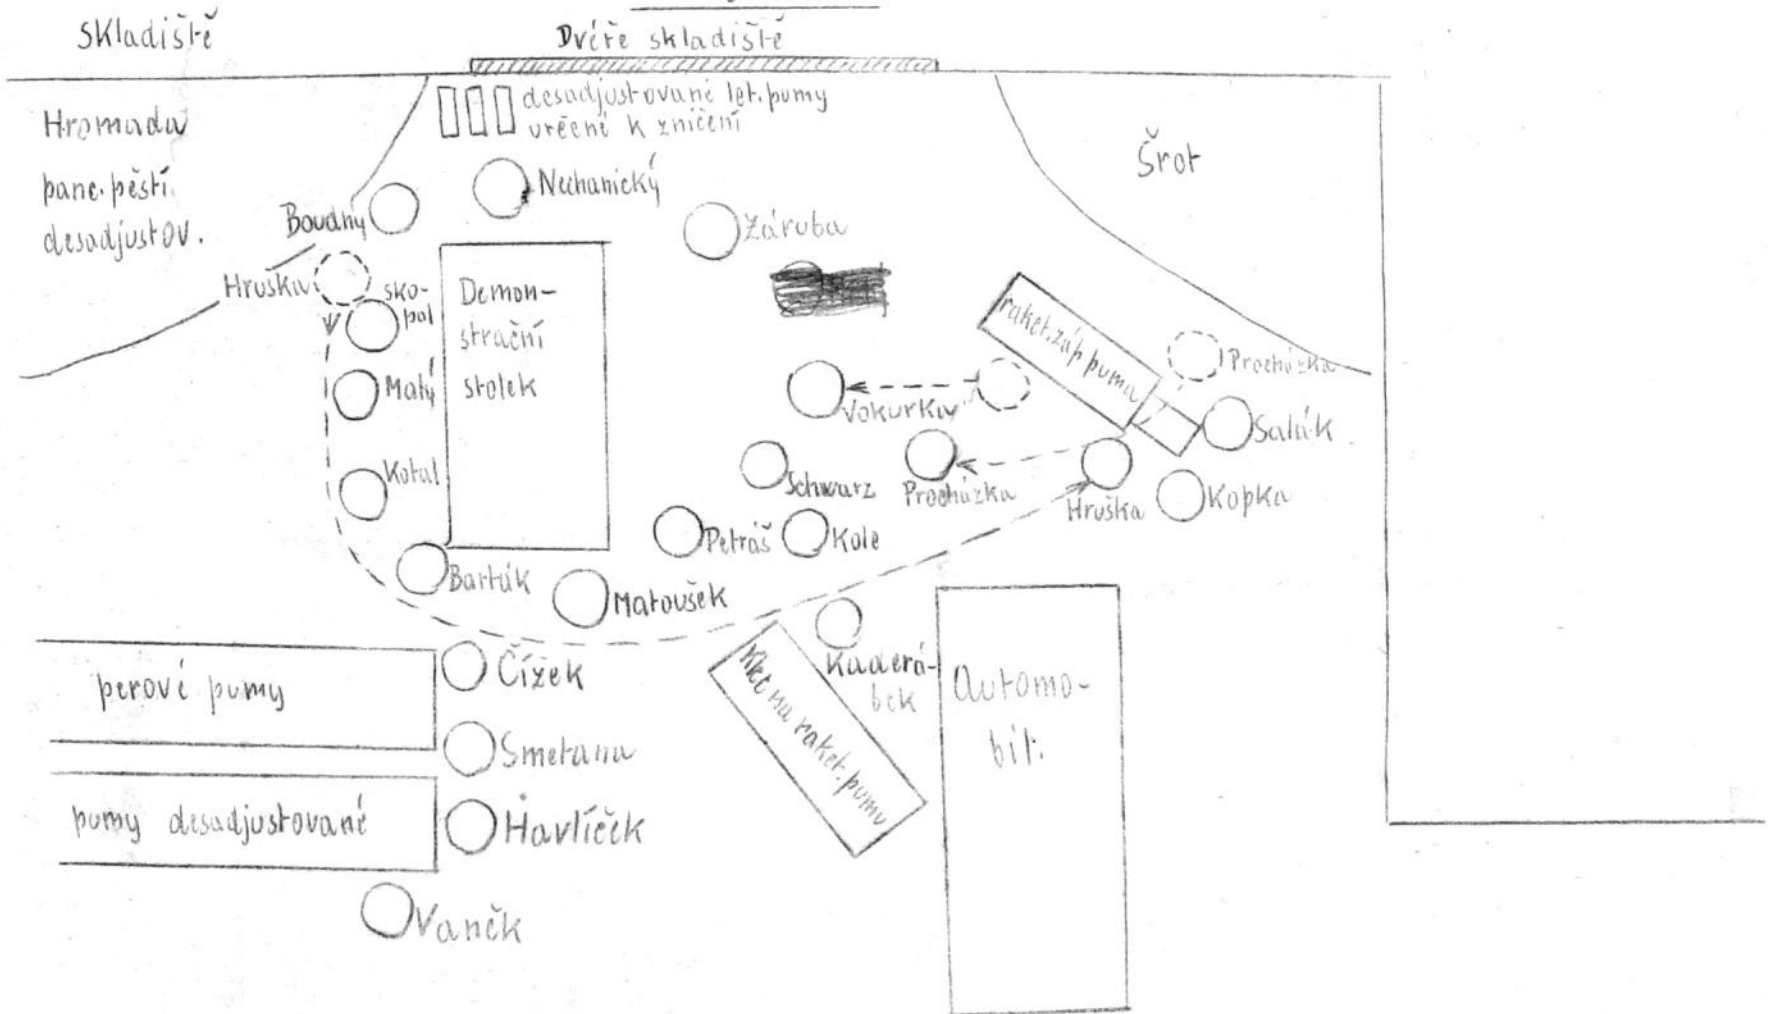 Skladiště
Dvéře skladiště
Hromada
panc. pěstí
desadjustov.
desadjustované let. pumy
určené k zničení
Šrot
Nechanický
Boudný
Záruba
Hruška
Sko-
pal
Demon-
strační
stolek
Malý
raket. záp. puma
Procházka
Vokurka
Salák
Kotal
Schwarz
Procházka
Hruška
Kopka
Petráš
Kole
Barták
Matoušek
Čížek
Kaderá-
bek
Automo-
bil.
perové pumy
Klec na raket. pumu
Smetana
pumy desadjustované
Havlíček
Vaněk